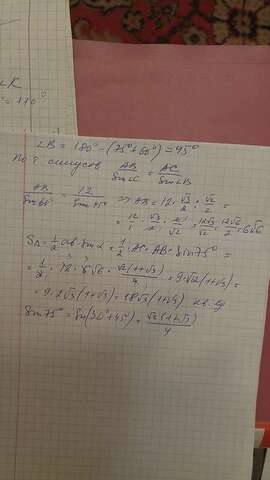 ∠K
= 110°
∠B = 180° - (75° + 60°) = 45°
По т синусов AB/sin∠C = AC/sin∠B
AB/sin60° = 12/sin45° ⇒ AB = 12 · √3/2 : √2/2 =
= 12/1 · √3/2 · 2/√2 = 12√3/√2 = 12√6/2 = 6√6
S△ = 1/2 ab · sin α = 1/2 · AC · AB · sin75° =
= 1/2 · 12 · 6√6 · √2(1+√3)/4 = 9 · √12(1+√3) =
= 9 · 2√3(1+√3) = 18√3(1+√3) кв. ед
sin75° = sin(30° + 45°) = √2(1+√3)/4